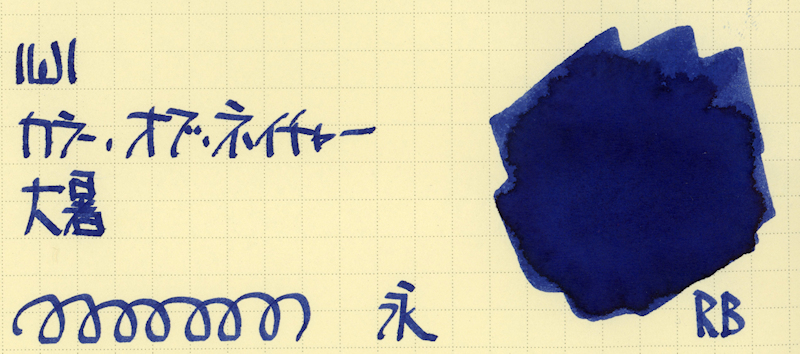 IWI
カラー・オブ・ネイチャー
大暑
永
RB